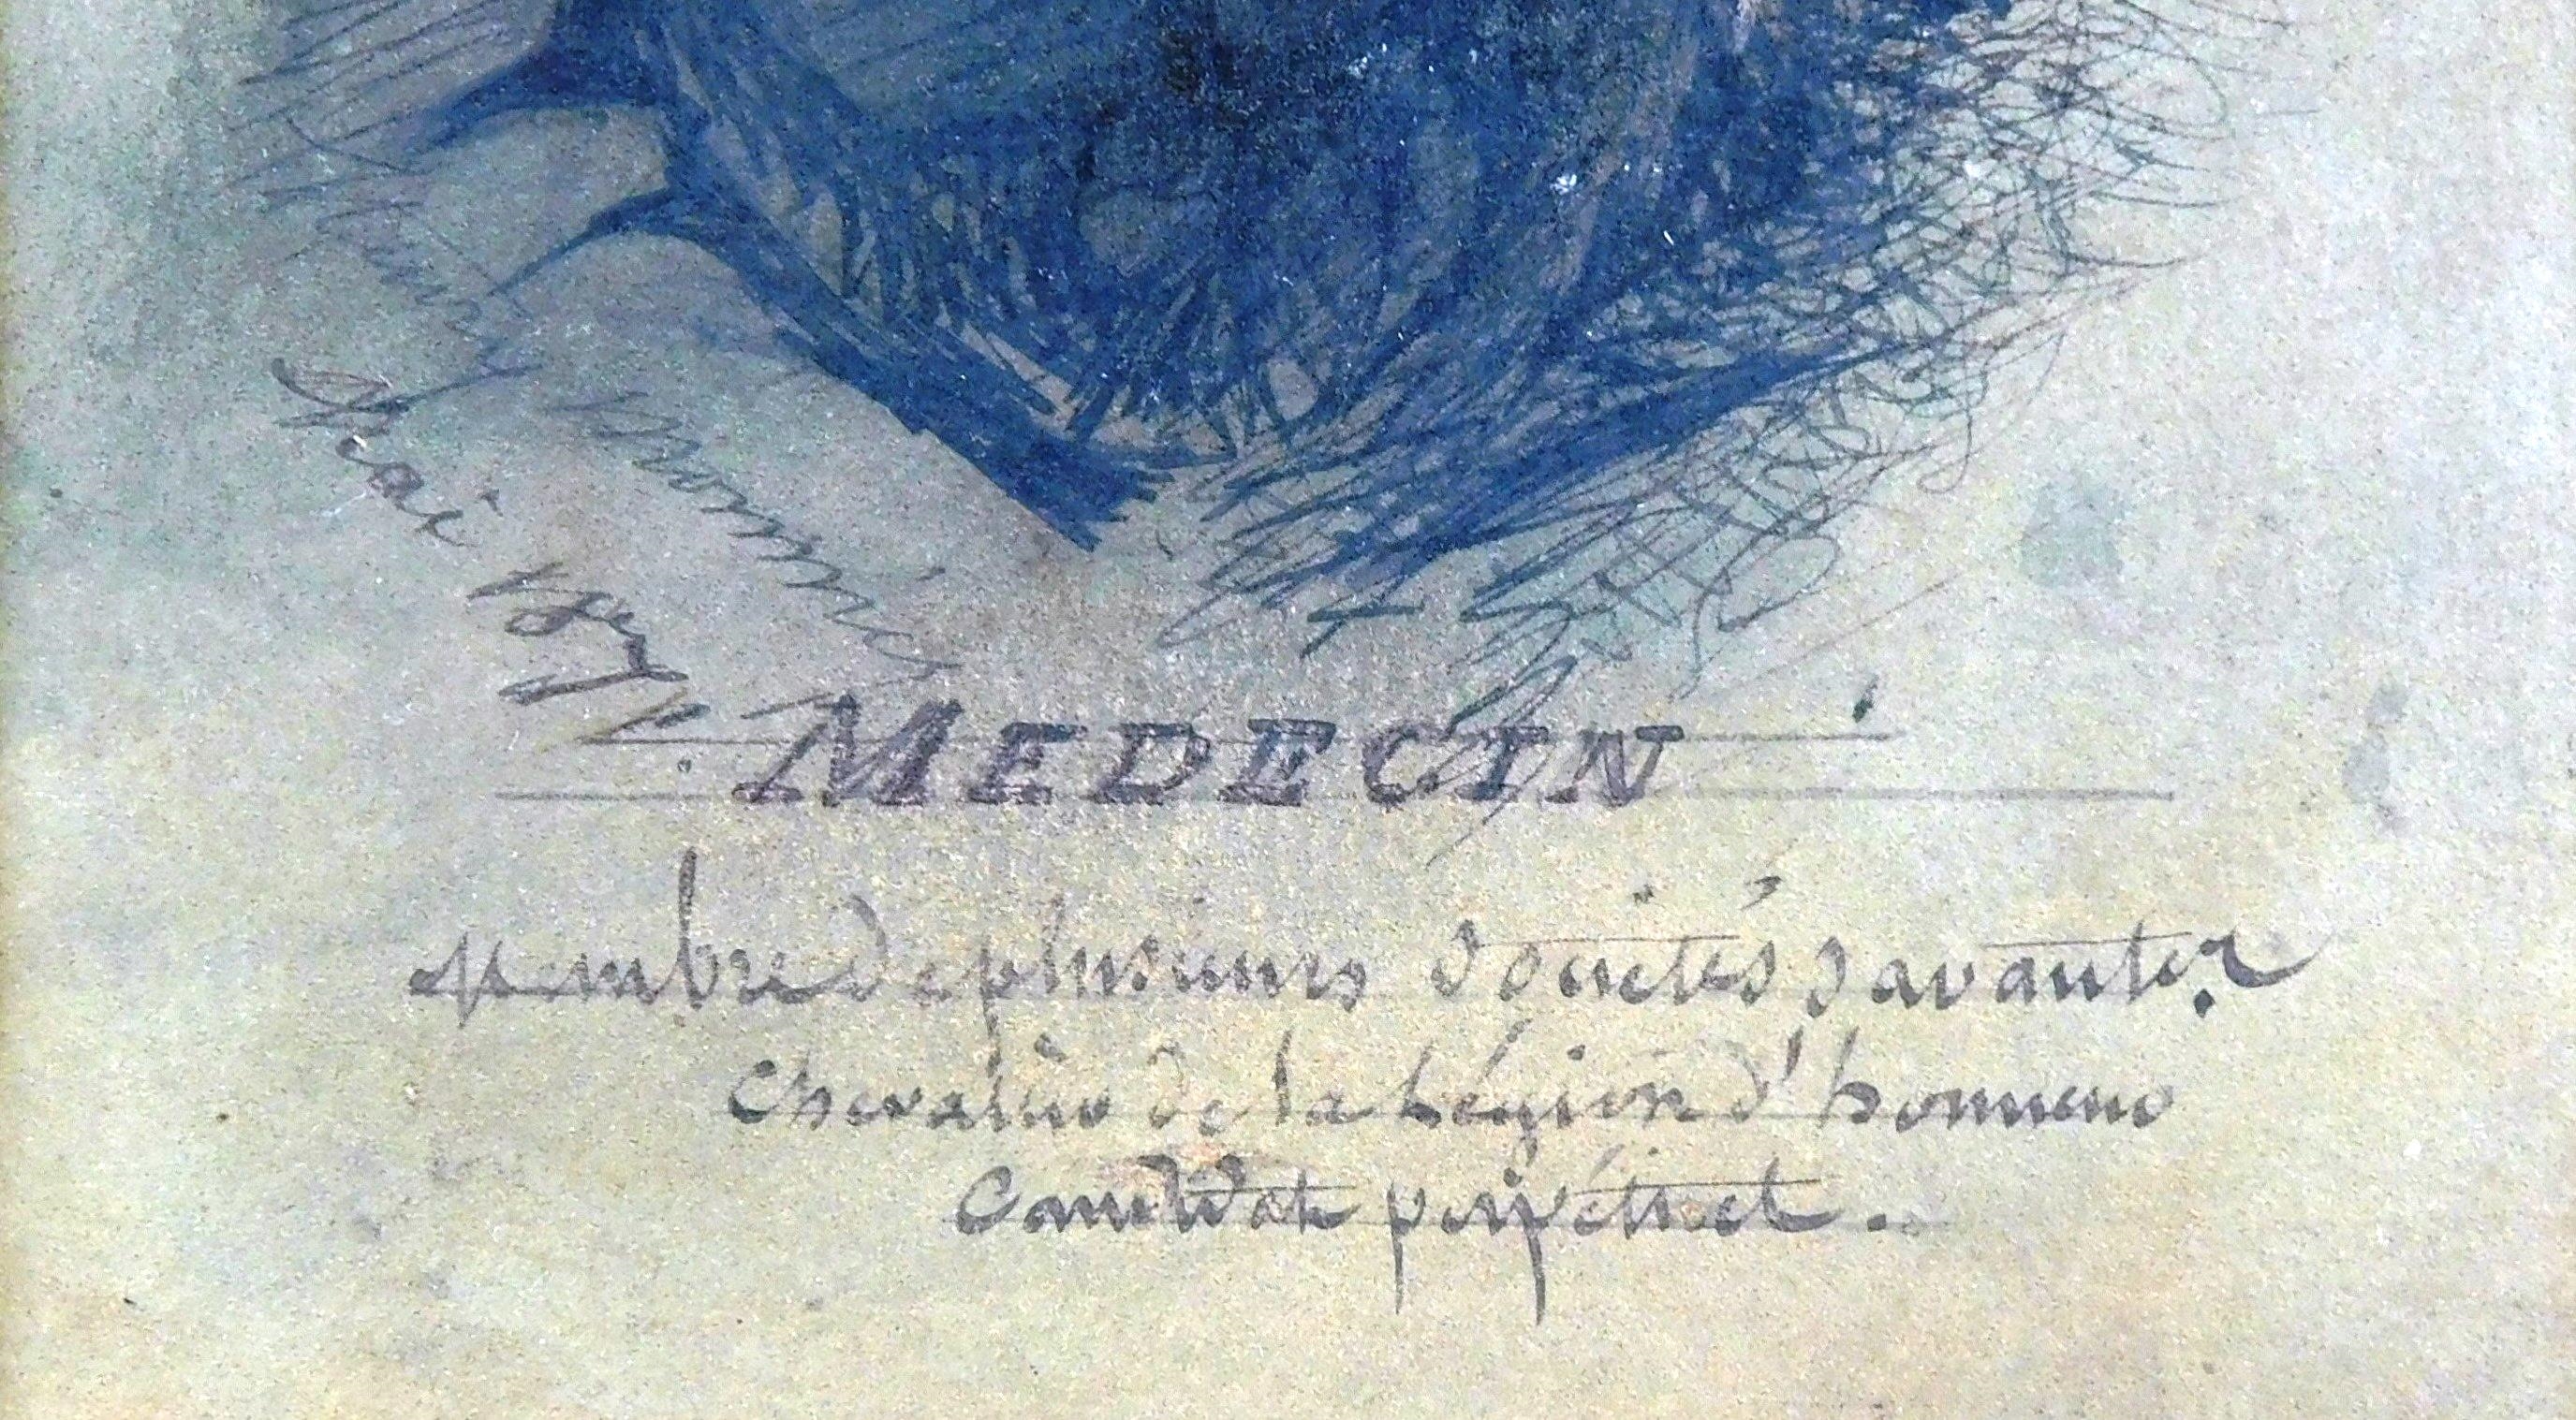 MEDECIN
Membre de plusieurs Sociétés Savantes.
Chevalier de la Légion d'honneur
Candidat perpétuel.